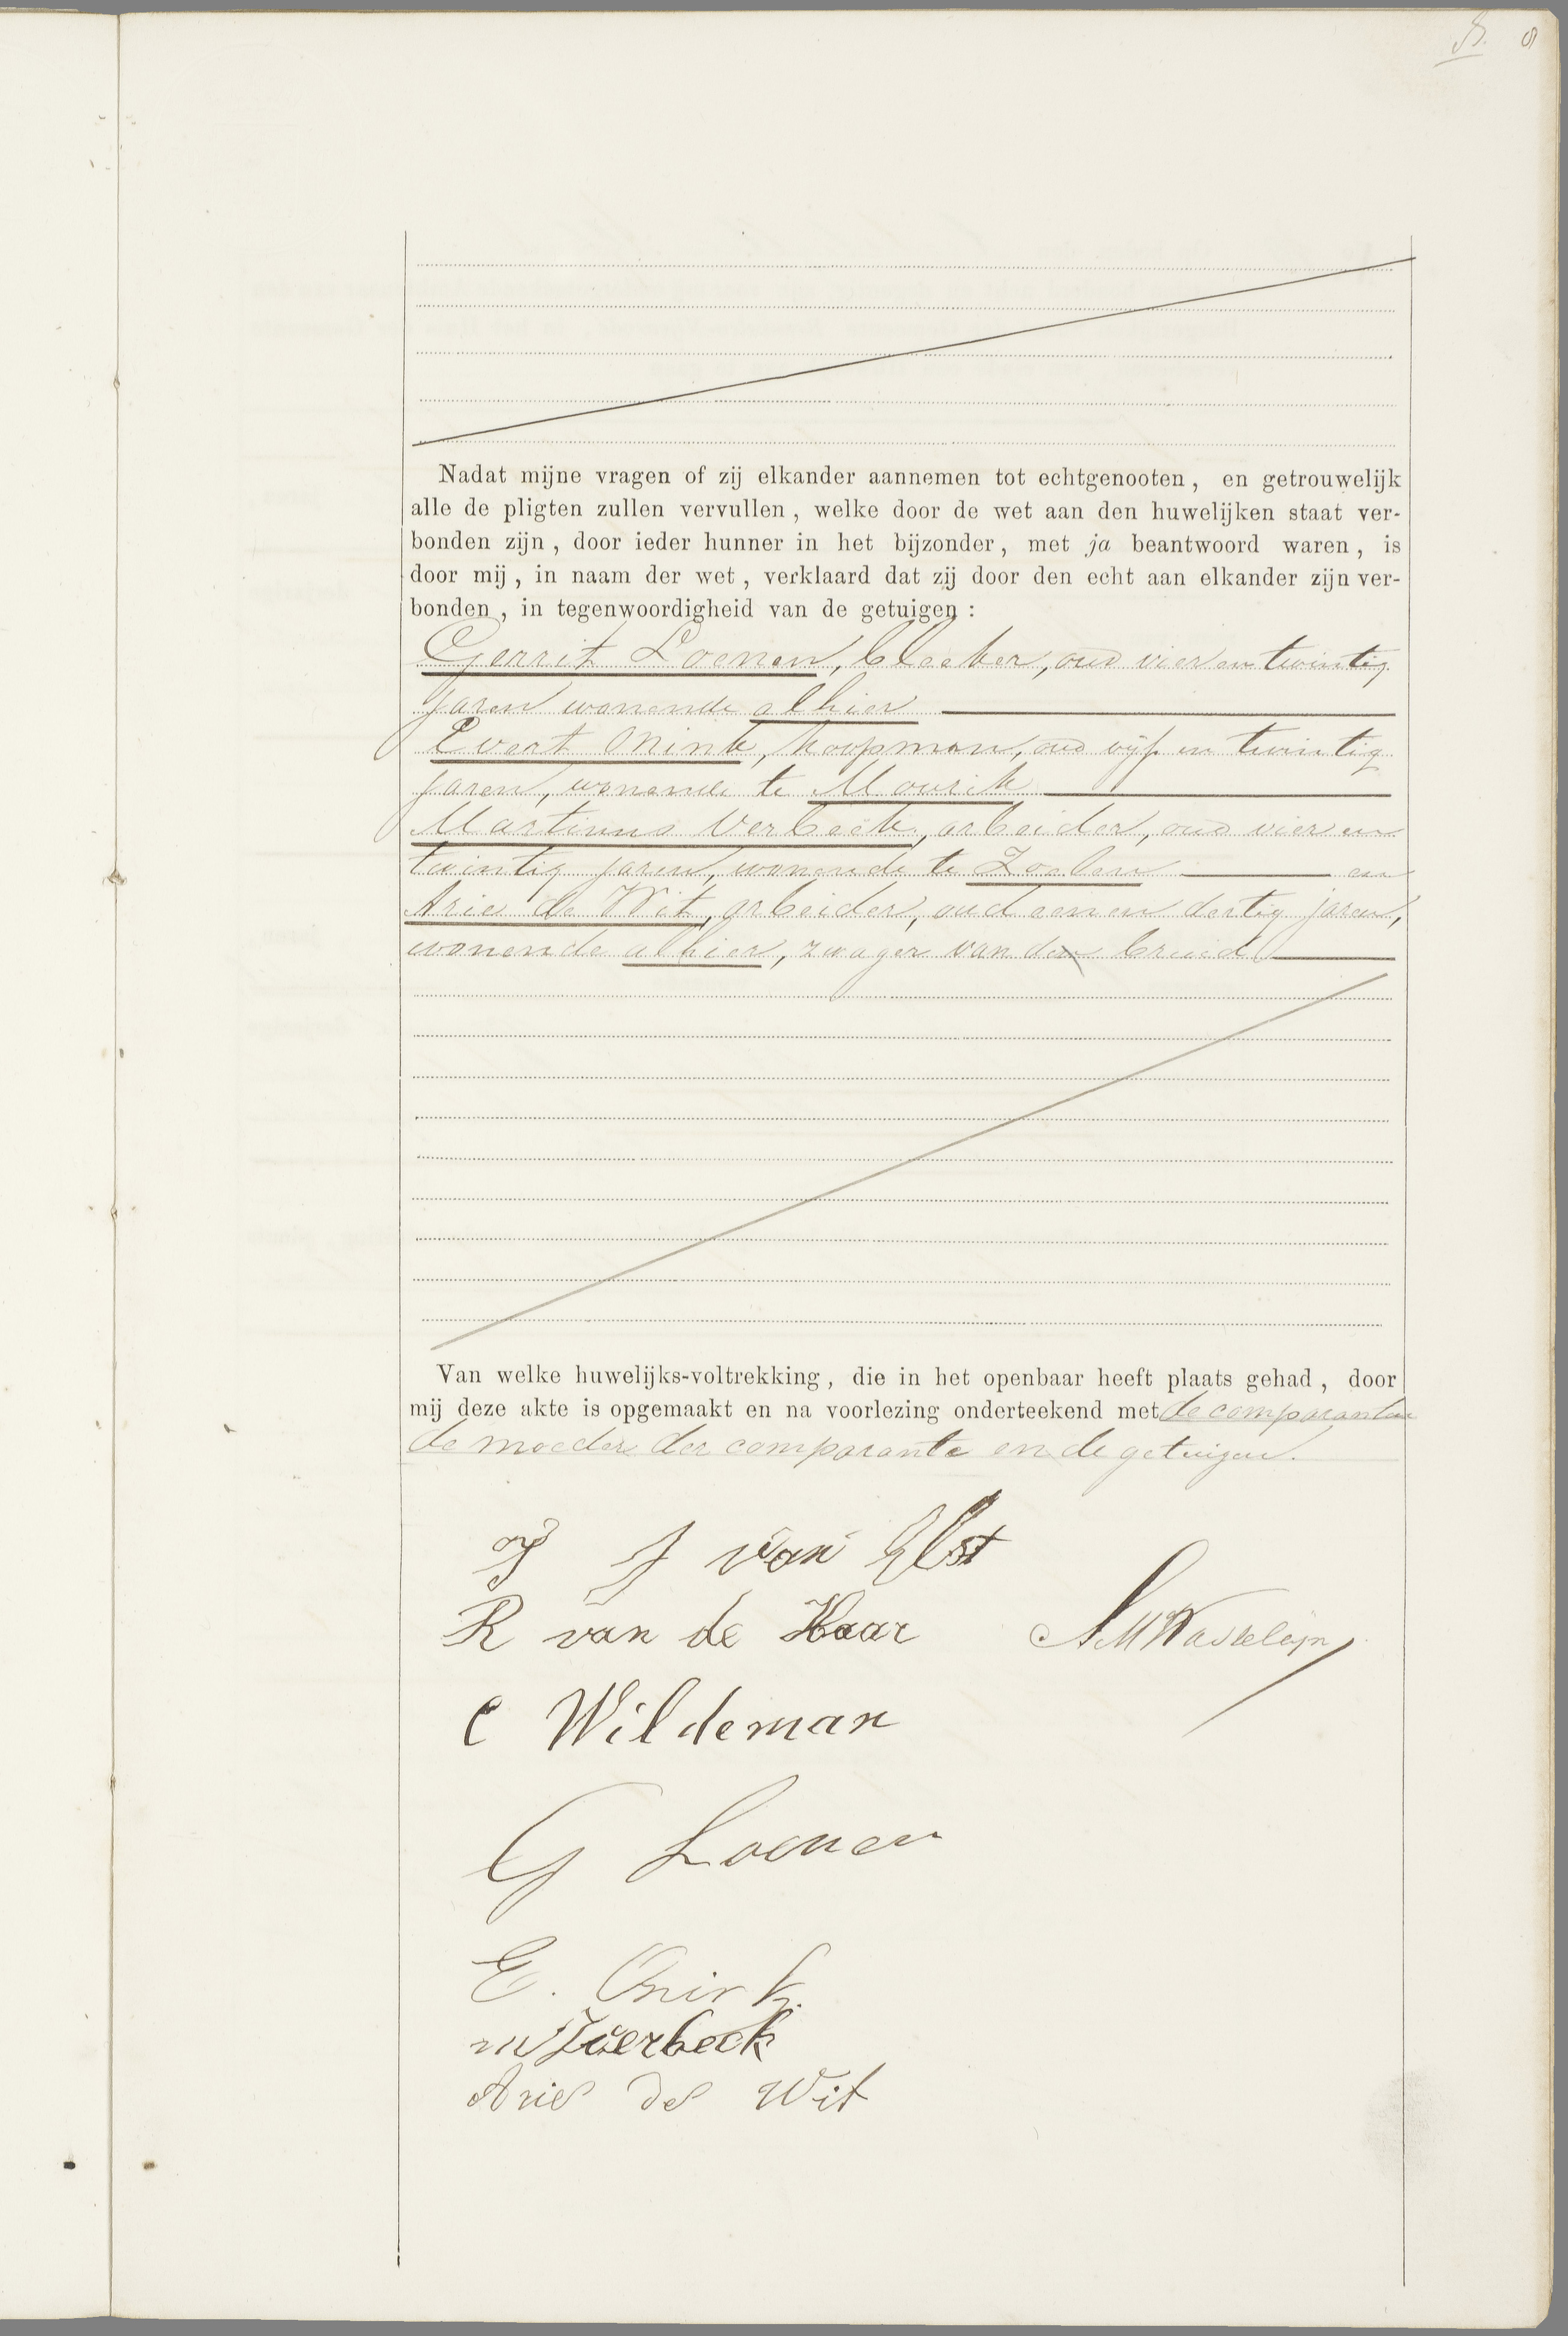 8
Nadat mijne vragen of zij elkander aannemen tot echtgenooten, en getrouwelijk
alle de pligten zullen vervullen, welke door de wet aan den huwelijken staat ver-
bonden zijn, door ieder hunner in het bijzonder, met ja beantwoord waren, is
door mij, in naam der wet, verklaard dat zij door den echt aan elkander zijn ver-
bonden, in tegenwoordigheid van de getuigen:
Gerrit Loenen, bleeker, oud vier en twintig
jaren wonende alhier
Evert Onink, koopman, oud vijf en twintig
jaren, wonende te Maurik
Martinus Verbeek, arbeider, oud vier en
twintig jaren, wonende te Zoelen en
Arie de Wit, arbeider, oud een en dertig jaren,
wonende alhier, zwager van de bruid
Van welke huwelijks-voltrekking, die in het openbaar heeft plaats gehad, door
mij deze akte is opgemaakt en na voorlezing onderteekend met de comparanten
de moeder der comparante en de getuigen.
J van Elst
R van de Haar
C Wildeman
G Loenen
E. Onink
m Verbeek
Arie de Wit